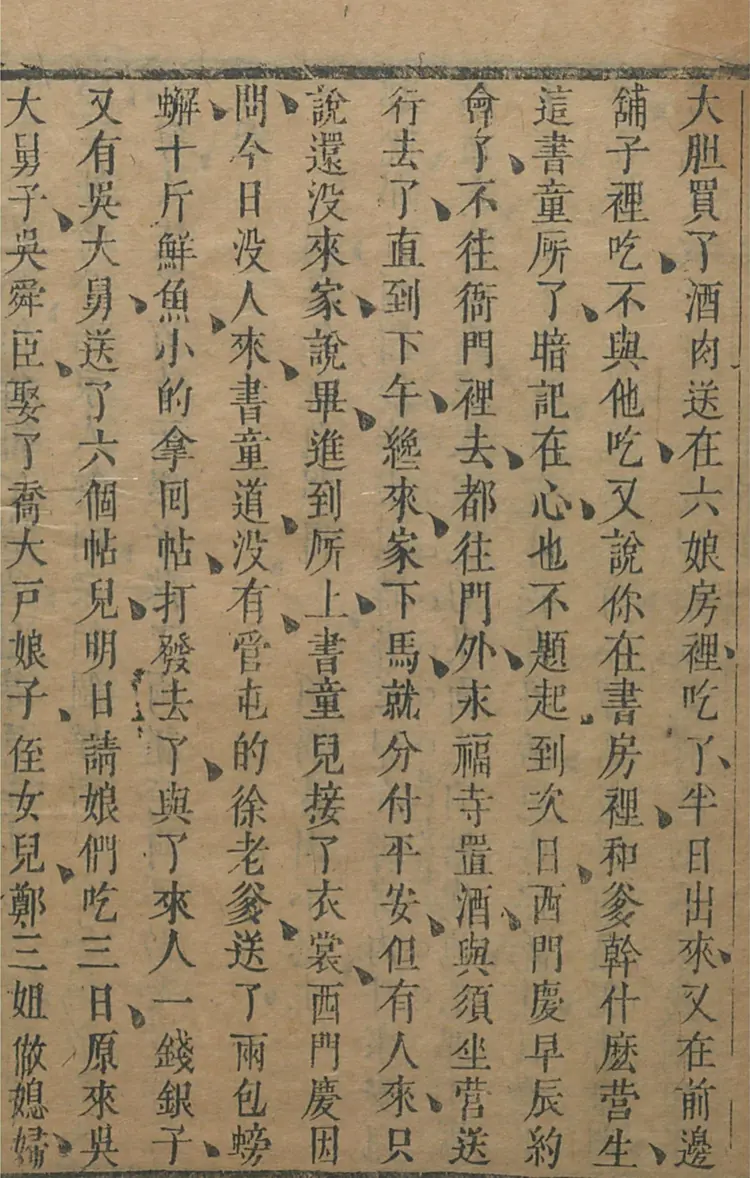 大胆買了酒肉送在六娘房裡吃了半日出來又在前邊
舖子裡吃不與他吃又說你在書房裡和爹幹什麽营生
這書童所了暗記在心也不題起到次日西門慶早辰約
會了不往衙門裡去都往門外末福寺置酒與須坐营送
行去了直到下午纔來家下馬就分付平安但有人來只
說還没來家說畢進到所上書童兒接了衣裳西門慶因
問今日没人來書童道没有管屯的徐老爹送了兩包螃
蠏十斤鮮魚小的拿囘帖打發去了與了來人一錢銀子
又有吳大舅送了六個帖兒明日請娘們吃三日原來吳
大舅子吳舜臣娶了喬大戸娘子侄女兒鄭三姐做媳婦